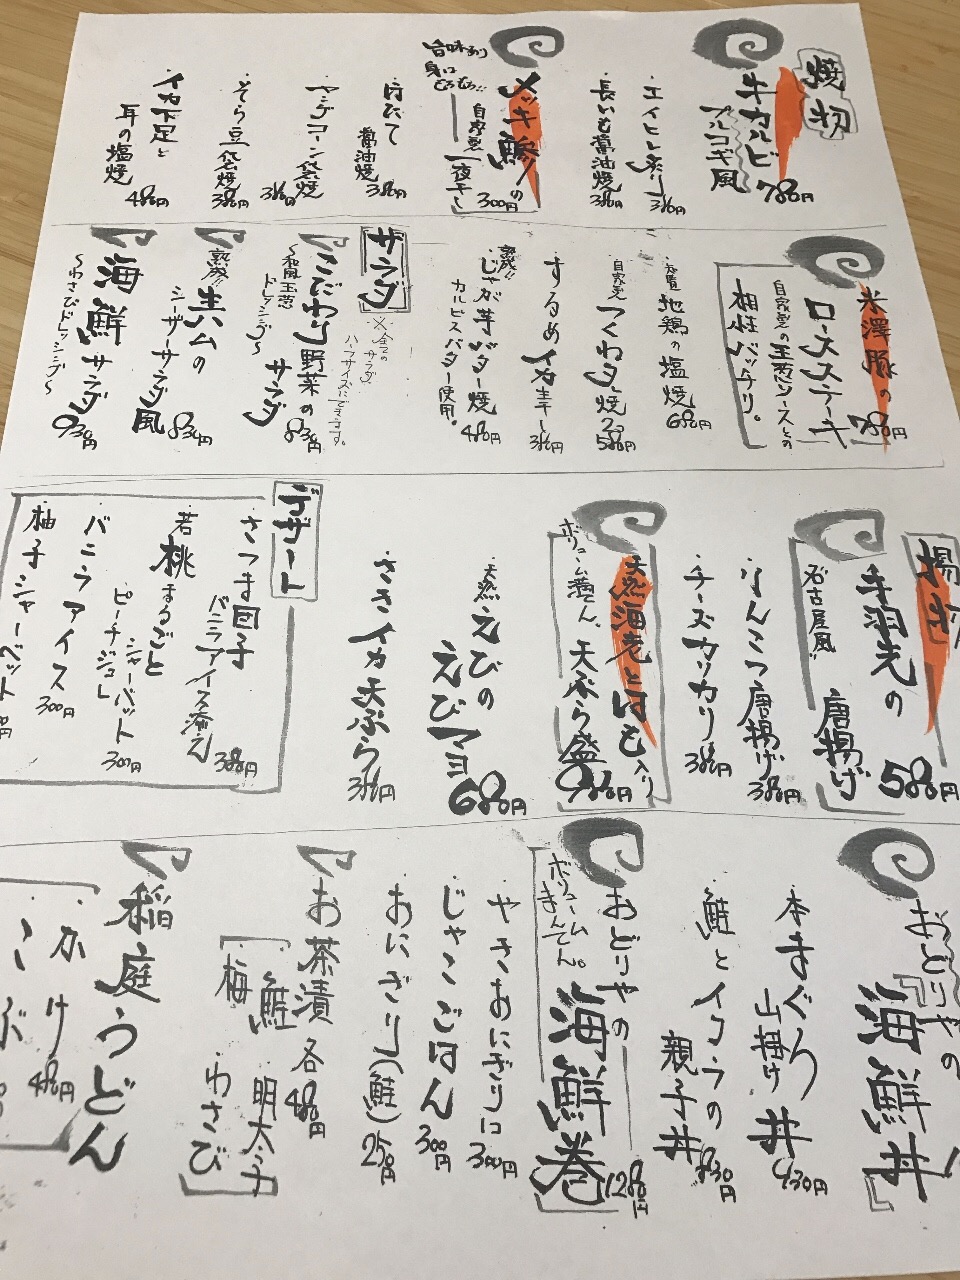 焼物
牛カルビ
プルコギ風
780円
エイヒレ炙り
380円
長いも醤油焼
380円
メッキ鯵の
自家製
一夜干し
300円
旨味あり
身は
ほたて
醤油焼
380円
ヤングコーン袋焼
380円
そら豆袋焼
380円
イカ下足と
耳の塩焼
480円
米澤豚の
ロースステーキ
780円
自家製の玉葱ソースとの
相性バッチリ。
地鶏の塩焼
680円
自家製
つくわさ焼
580円
するめイカ
380円
熟成!!
じゃが芋バター焼
カルピスバター使用。
480円
サラダ
※全てのサラダ
ハーフサイズにできます。
こだわり野菜の
サラダ
〜和風玉葱
ドレッシング〜
830円
熟成!!
生ハムの
シーザーサラダ風
830円
海鮮サラダ
〜わさびドレッシング〜
930円
揚物
手羽先の
唐揚げ
名古屋風!!
580円
なんこつ唐揚げ
380円
チーズカリカリ
380円
天然海老とはも入り
天ぷら盛
ボリューム満てん。
980円
天然えびの
えびマヨ
680円
ささイカ天ぷら
380円
デザート
さつま団子
バニラアイス添え
380円
若桃まるごと
シャーベット
ピーチジュレ
300円
バニラアイス
300円
柚子シャーベット
おどりやの
海鮮丼
本まぐろ
山掛け丼
930円
鮭とイクラの
親子丼
830円
おどりやの
海鮮巻
ボリューム
まんてん。
1280円
やきおにぎり
300円
じゃこごはん
300円
おにぎり(鮭)
250円
お茶漬
各480円
鮭
明太子
梅
わさび
稲庭うどん
かけ
480円